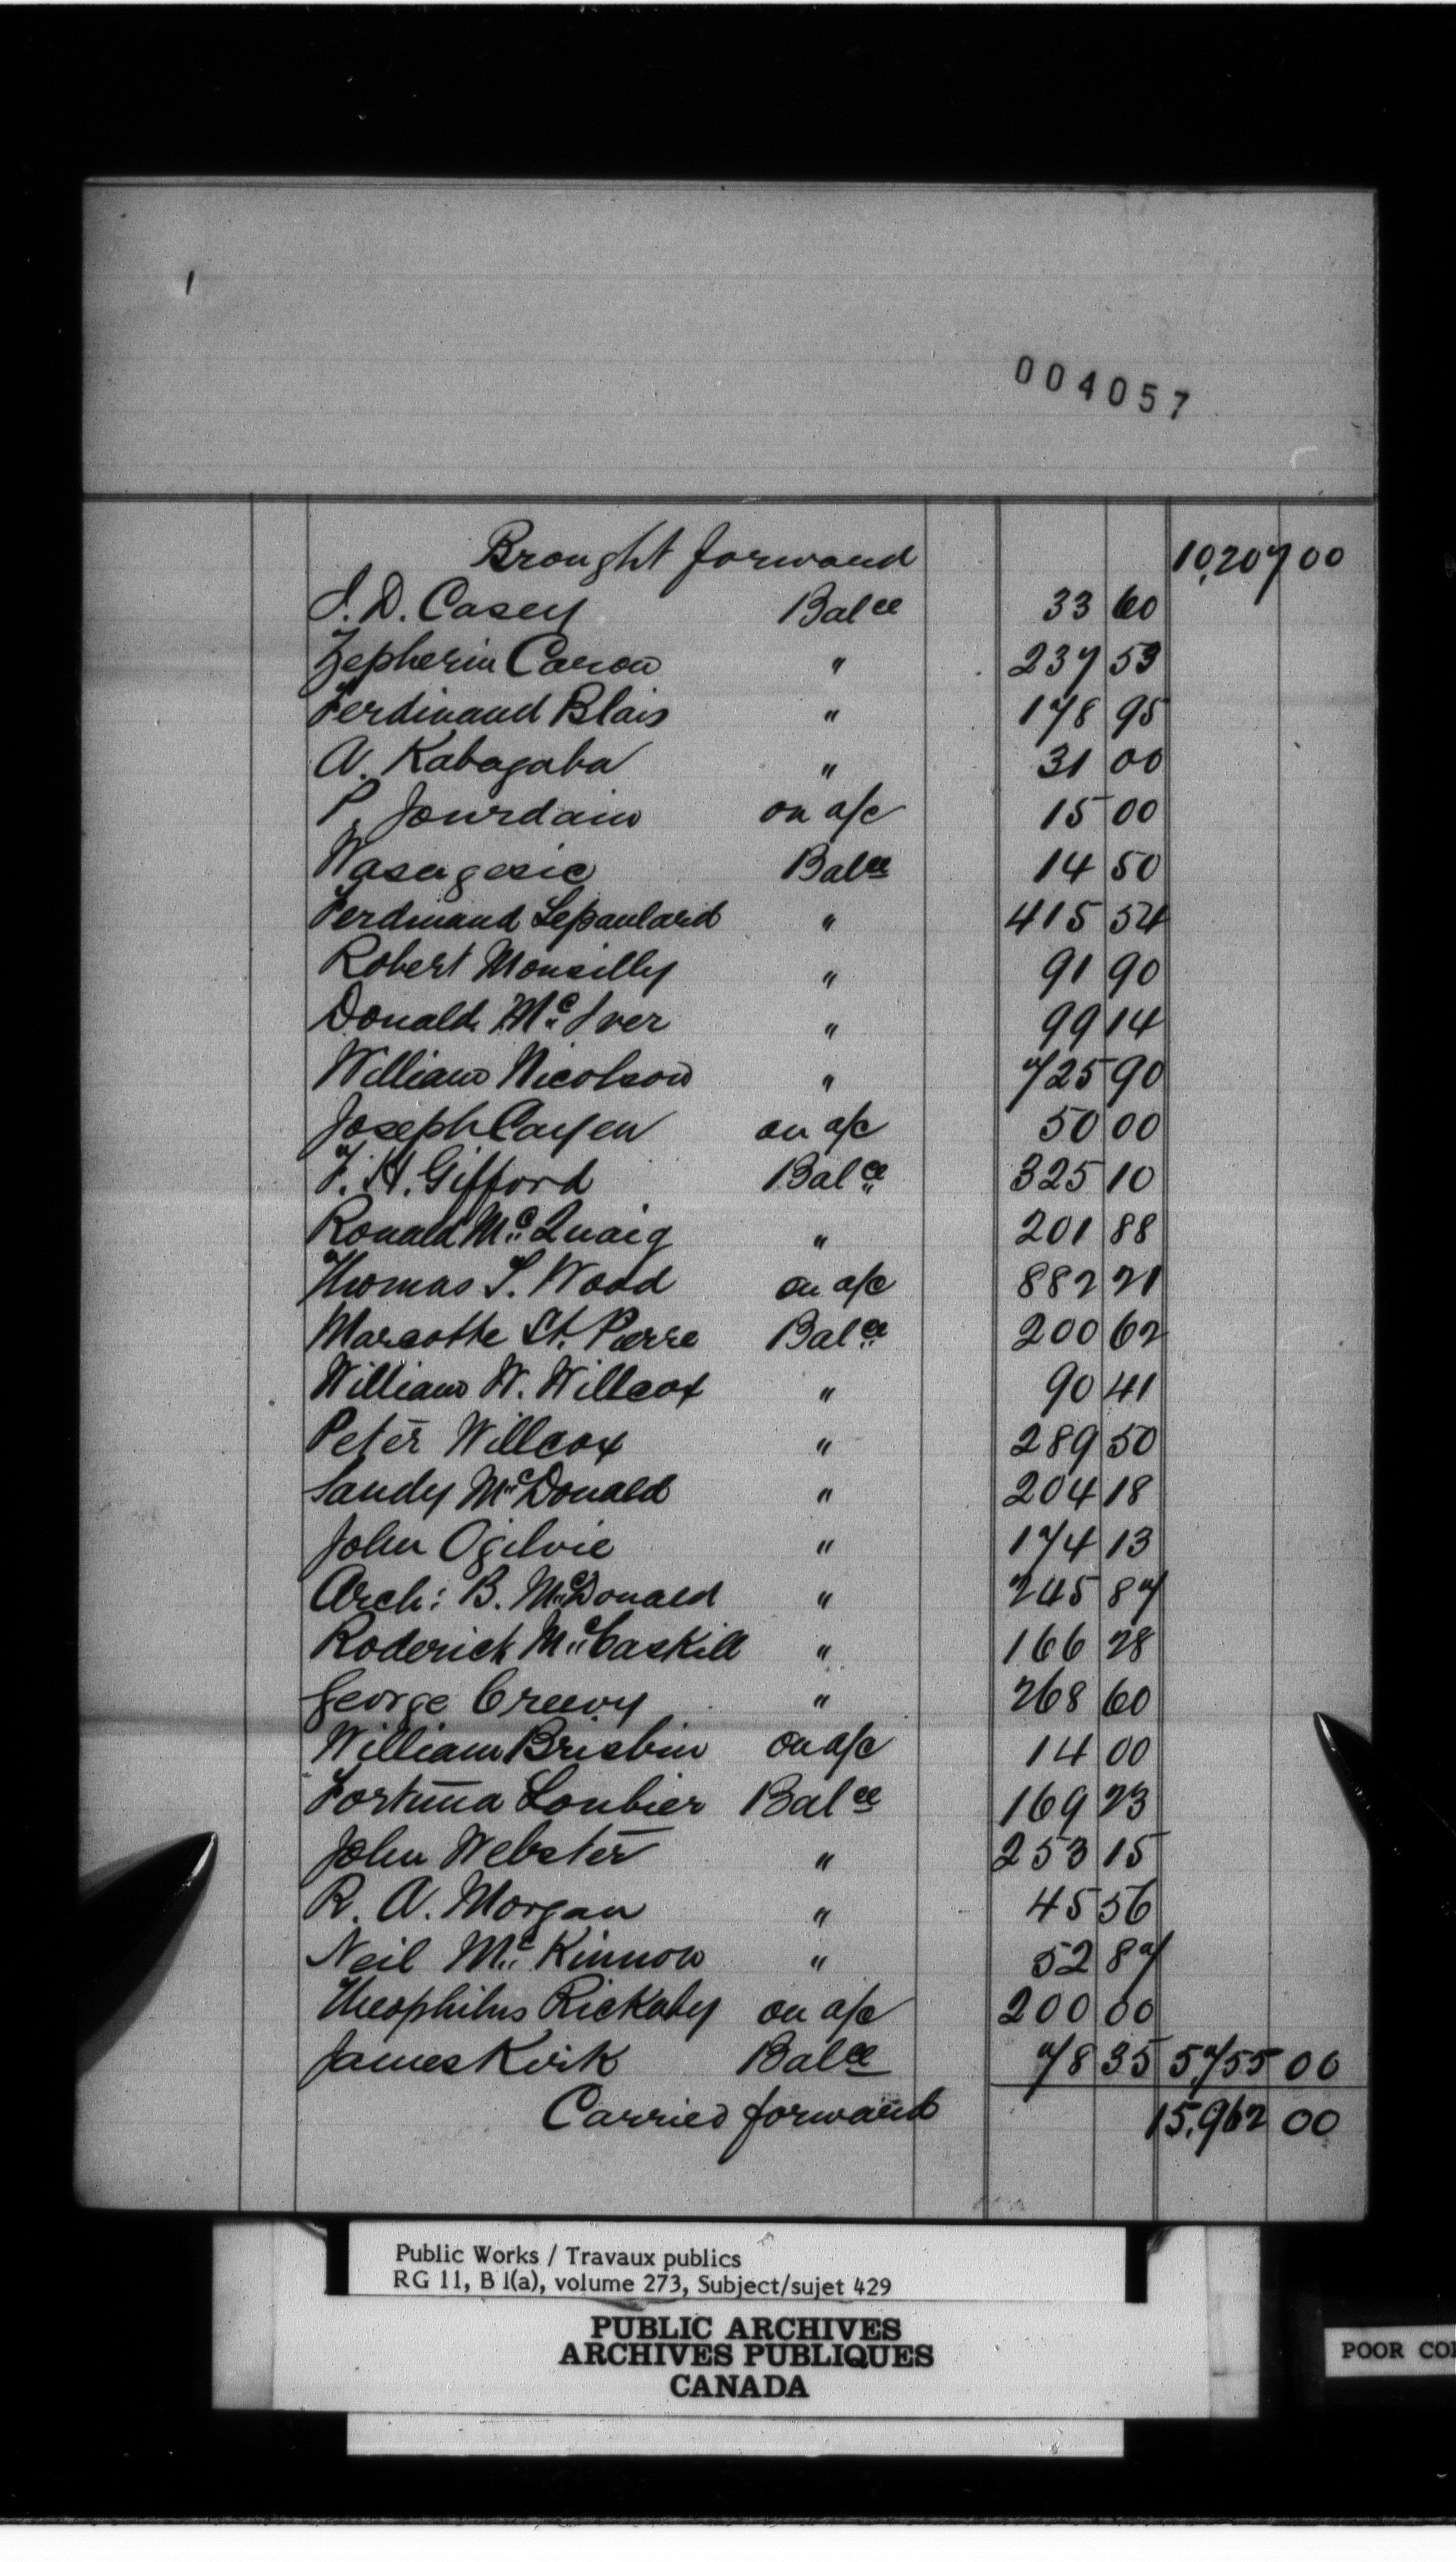 004057
Brought forward 10,207 00
J. D. Casey Balce 33 60
Zepherin Caron " 237 53
Ferdinand Blais " 178 95
A. Kabagaba " 31 00
P. Jourdain on a/c 15 00
Wasagesic Balce 14 50
Ferdinand Lepaulard " 415 54
Robert Monsilly " 91 90
Donald McIver " 99 14
William Nicolson " 725 90
Joseph Cayen on a/c 50 00
F. H. Gifford Balce 325 10
Ronald McQuaig " 201 88
Thomas S. Wood on a/c 882 21
Marcotte St. Pierre Balce 200 62
William W. Willcox " 90 41
Peter Willcox " 289 50
Sandy McDonald " 204 18
John Ogilvie " 174 13
Arch: B. McDonald " 245 87
Roderick McCaskill " 166 28
George Creevy " 268 60
William Brisbin on a/c 14 00
Fortuna Loubier Balce 169 23
John Webster " 253 15
R. A. Morgan " 45 56
Neil McKinnon " 52 87
Theophilus Rickaby on a/c 200 00
James Kirk Balce 78 35 5,755 00
Carried forward 15,962 00
Public Works / Travaux publics
RG 11, B 1(a), volume 273, Subject/sujet 429
PUBLIC ARCHIVES
ARCHIVES PUBLIQUES
CANADA
POOR